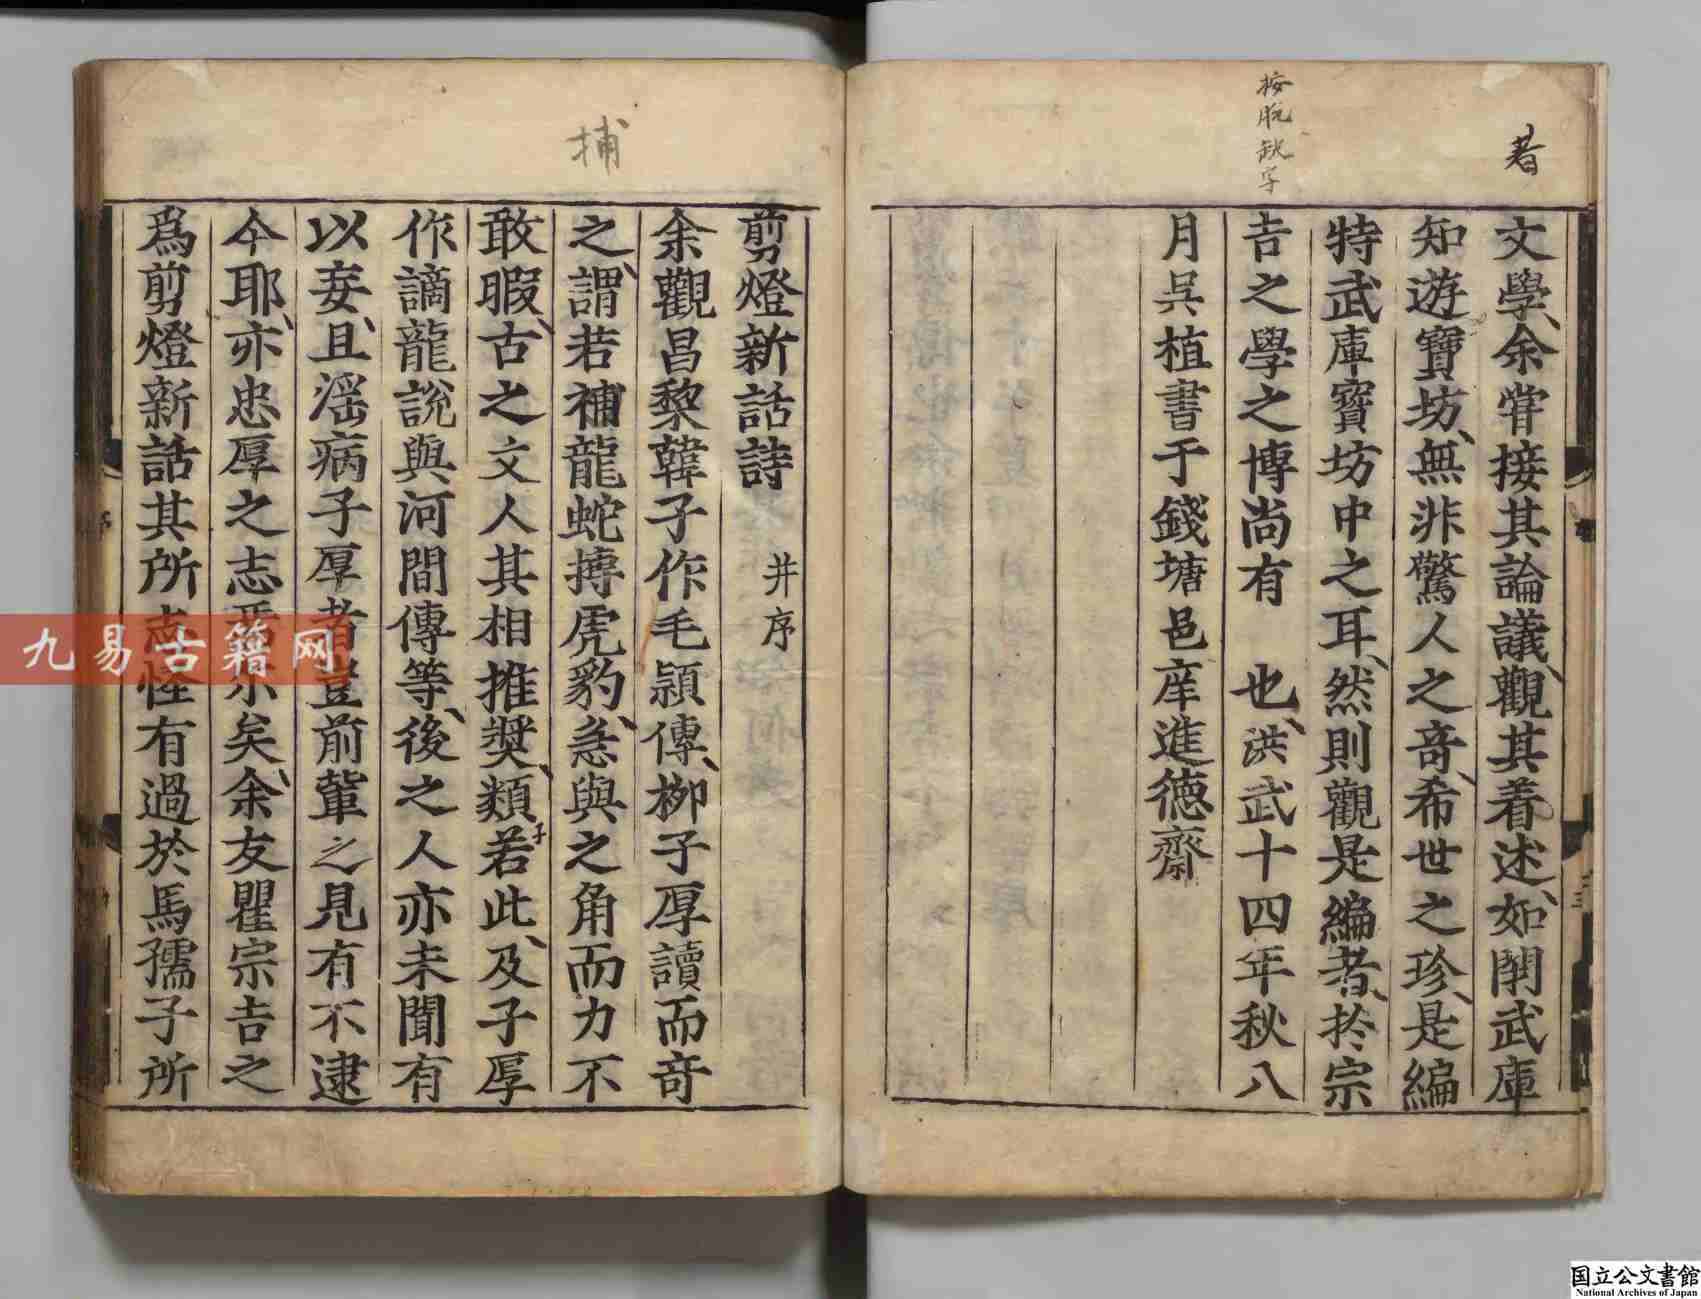 著
按脱缺字
文學余甞接其論議觀其着述如開武庫
知遊寶坊無非驚人之竒希世之珍是編
特武庫寶坊中之耳然則觀是編者於宗
吉之學之博尚有　也洪武十四年秋八
月吴植書于錢塘邑庠進德齋
捕
剪燈新話詩　并序
余觀昌黎韓子作毛頴傳栁子厚讀而竒
之謂若補龍蛇搏虎豹急與之角而力不
敢暇古之文人其相推奬類若此及子厚
子
作謫龍說與河間傳等後之人亦未聞有
以妄且滛病子厚者豈前軰之見有不逮
今耶亦忠厚之志焉尓矣余友瞿宗吉之
爲剪燈新話其所志怪有過於馬孺子所
九易古籍网
国立公文書館
National Archives of Japan